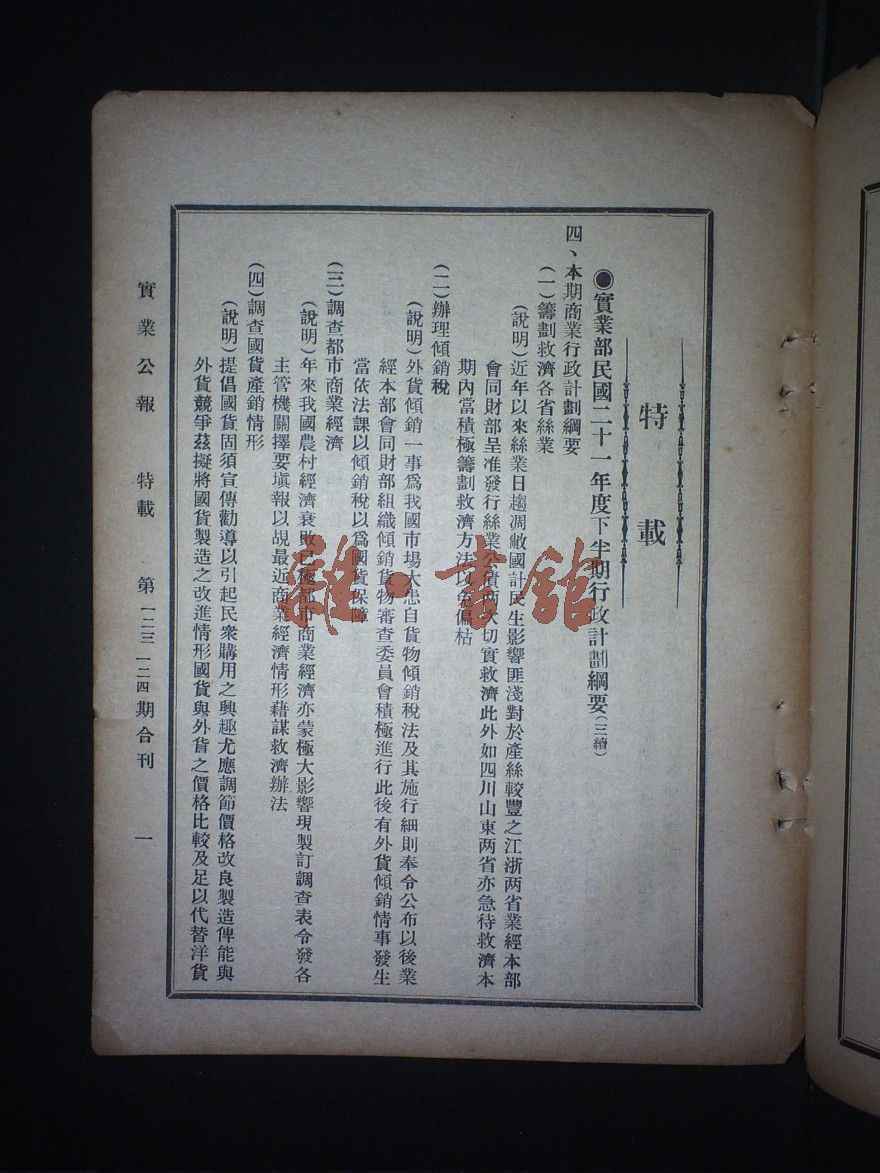 特載
●實業部民國二十一年度下半期行政計劃綱要(三續)
四、本期商業行政計劃綱要
(一)籌劃救濟各省絲業
(說明)近年以來絲業日趨凋敝國計民生影響匪淺對於產絲較豐之江浙两省業經本部
會同財部呈准發行絲業公債两次切實救濟此外如四川山東两省亦急待救濟本
期內當積極籌劃救濟方法以免偏枯
(二)辦理傾銷稅
(說明)外貨傾銷一事爲我國市場大患自貨物傾銷稅法及其施行細則奉令公布以後業
經本部會同財部組織傾銷貨物審查委員會積極進行此後有外貨傾銷情事發生
當依法課以傾銷稅以爲國貨保障
(三)調查都市商業經濟
(說明)年來我國農村經濟衰敗已極都市商業經濟亦蒙極大影響現製訂調查表令發各
主管機關擇要塡報以覘最近商業經濟情形藉謀救濟辦法
(四)調查國貨產銷情形
(說明)提倡國貨固須宣傳勸導以引起民衆購用之興趣尤應調節價格改良製造俾能與
外貨競爭茲擬將國貨製造之改進情形國貨與外貨之價格比較及足以代替洋貨
實業公報 特載 第一二三一二四期合刊 一
雜·書館